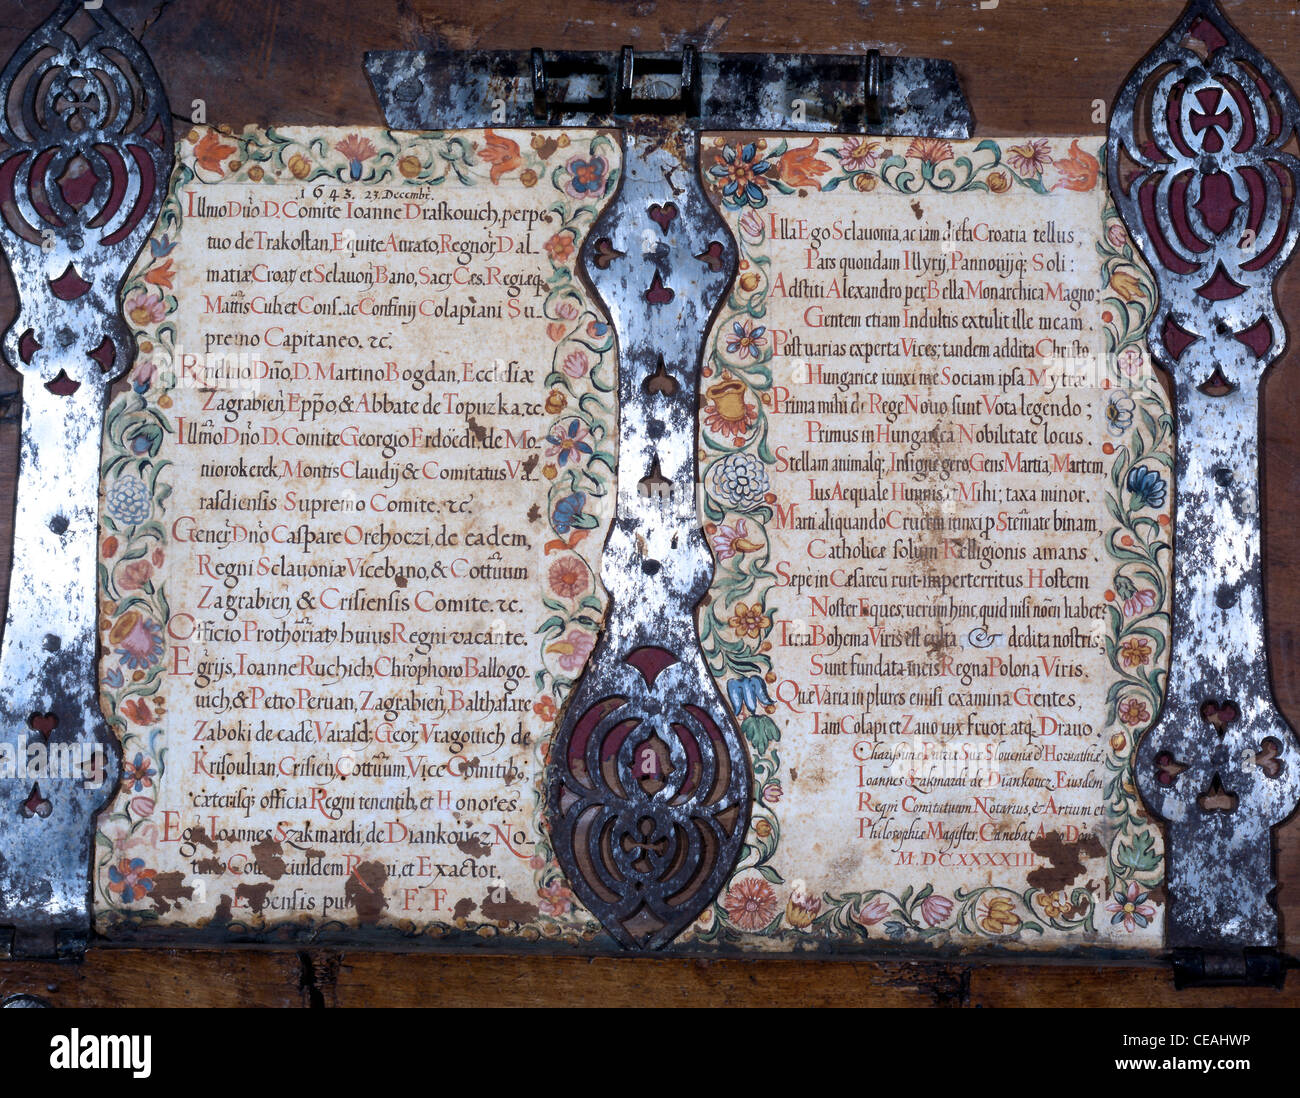 1643. 23. Decembr.
Illmo Dno D. Comite Ioanne Draskouich, perpe
tuo de Trakostan, Equite Aurato, Regnor D al
matiæ Croat et Sclauon Bano, Sacr Cæs. Regiæq
Mattis Cub. et Cons. ac Confinij Colapiani Su-
premo Capitaneo. &c.
Rndmo Dno, D. Martino Bogdan, Ecclesiæ
Zagrabien Eppo, & Abbate de Topuzka. &c.
Illmo Dno D. Comite Georgio Erdöedi, de Mo-
niorokerek, Montis Claudij & Comitatus Va-
rasdiensis Supremo Comite. &c.
Gener Dno Caspare Orehoczi, de eadem,
Regni Sclauoniæ Vicebano, & Cottuum
Zagrabien & Crisiensis Comite. &c.
Officio Prothonriat9 huius Regni vacante.
Egrijs, Ioanne Ruchich, Chrophoro Ballogo-
uich, & Petro Peruan, Zagrabien, Balthasare
Zaboki de eade, Varasd: Geor Vragouich de
Krisoulian, Crisien, Cottuum, Vice Comitib;
cæterisq officia Regni tenentib, et Honores.
Egr Ioannes Szakmardi, de Diankoucz, No-
eiusdem Regni, et Exactor.
Expensis F. F.
Illa Ego Sclauonia, ac iam dicta Croatia tellus,
Pars quondam Illyrij, Pannonijq Soli:
Adstiti Alexandro per Bella Monarchica Magno:
Gentem etiam Indultis extulit ille meam.
Post uarias experta Vices; tandem addita Christo,
Hungaricæ iunxi me Sociam ipsa Mytræ.
Prima mihi de Rege Nouo sunt Vota legendo;
Primus in Hungarica Nobilitate locus.
Stellam animalq, Insigne gero, Gens Martia, Martem,
Ius Aequale Hunnis, et Mihi; taxa minor.
Marti aliquando Crucem iunxi p Stemate binam,
Catholicæ solum Relligionis amans
Sepe in Cæsareu ruit imperterritus Hostem
Noster Eques; uerum hinc quid nisi nomen habet?
Terra Bohema Viris est culta, & dedita nostris;
Sunt fundata meis Regna Polona Viris.
Quæ Varia in plures emisi examina Gentes,
Iam Colapi et Zauo uix fruor atq Drauo.
Charissimæ Patriæ Suæ Slouenia d' Horuathiæ,
Ioannes Szakmardi de Diankoucz, Eiusdem
Regni Comitatuum Notarius, & Artium et
Philosophiæ Magister, Canebat Anno Dni
M. DCXXXXIII
alamy
Image ID: CEAHWP
www.alamy.com